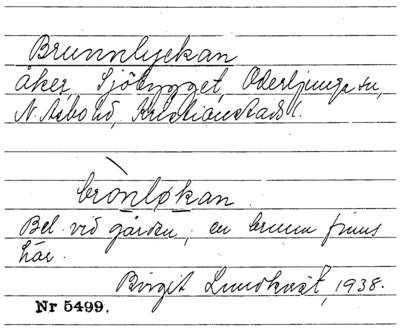 Brunnlyckan
åker, Sjöbygget, Oderljunga sn,
N. Åsbo hd, Kristianstads l.
brònlø̱kan
Bel. vid gården; en brunn finns
här.
Birgit Lundkvist, 1938.
Nr 5499.